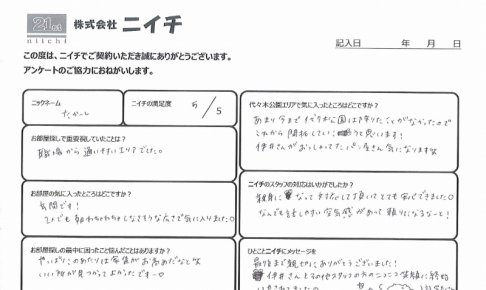 21st
niichi
株式会社 ニイチ
記入日 年 月 日
この度は、ニイチでご契約いただき誠にありがとうございます。
アンケートのご協力におねがいします。
ニックネーム
たかーし
ニイチの満足度
5/5
お部屋探しで重要視していたことは？
職場から通いやすいエリアでした。
お部屋の気に入ったところはどこですか？
玄関です！
2人でも朝わちゃわちゃしなさそうな広さで気に入りました。
お部屋探しの最中に困ったこと悩んだことはありますか？
やっぱりこのあたりは家賃がお高めだなと笑
いい物が見つかってよかったですー。
代々木公園エリアで気に入ったところはどこですか？
あまり今まで代々木公園は降りたことがなかったので
これから開拓していこうと思います！
伊井さんがおっしゃってたパン屋さん気になります笑
ニイチのスタッフの対応はいかがでしたか？
親身になって対応して頂いてとても安心できました。
なんでも話しやすい空気感があって頼りになるなーと！
ひとことニイチにメッセージを
最後まで親切にありがとうございました！
伊井さんとその他スタッフの方のニコニコ笑顔に終始
いやされてました。